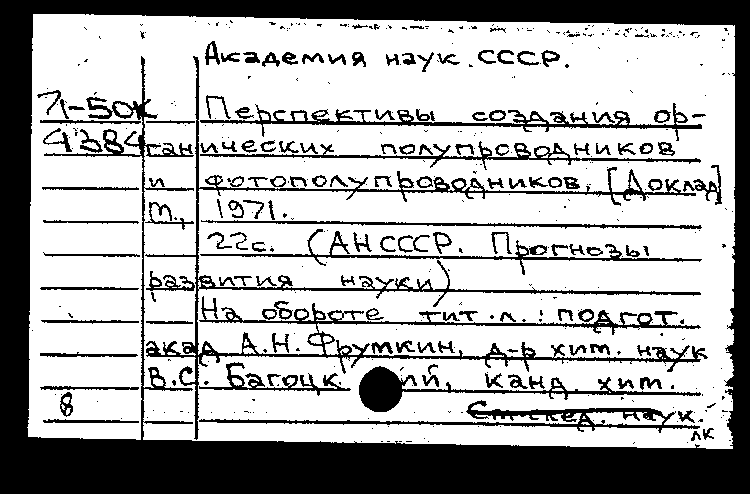 Академия наук СССР.
Л-50к Перспективы создания ор-
4384 ганических полупроводников
и фотополупроводников. [Доклад]
М., 1971.
22с. (АН СССР. Прогнозы
развития науки)
На обороте тит.л.: подгот.
акад А.Н. Фрумкин, д-р хим. наук
В.С. Багоцк ий, канд. хим.
8 наук.
лк